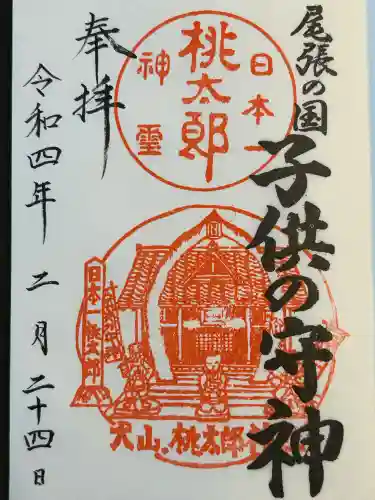 尾張の国
子供の守神
日本一
桃太郎
神霊
奉拝
令和四年 二月二十四日
日本一
犬山 桃太郎